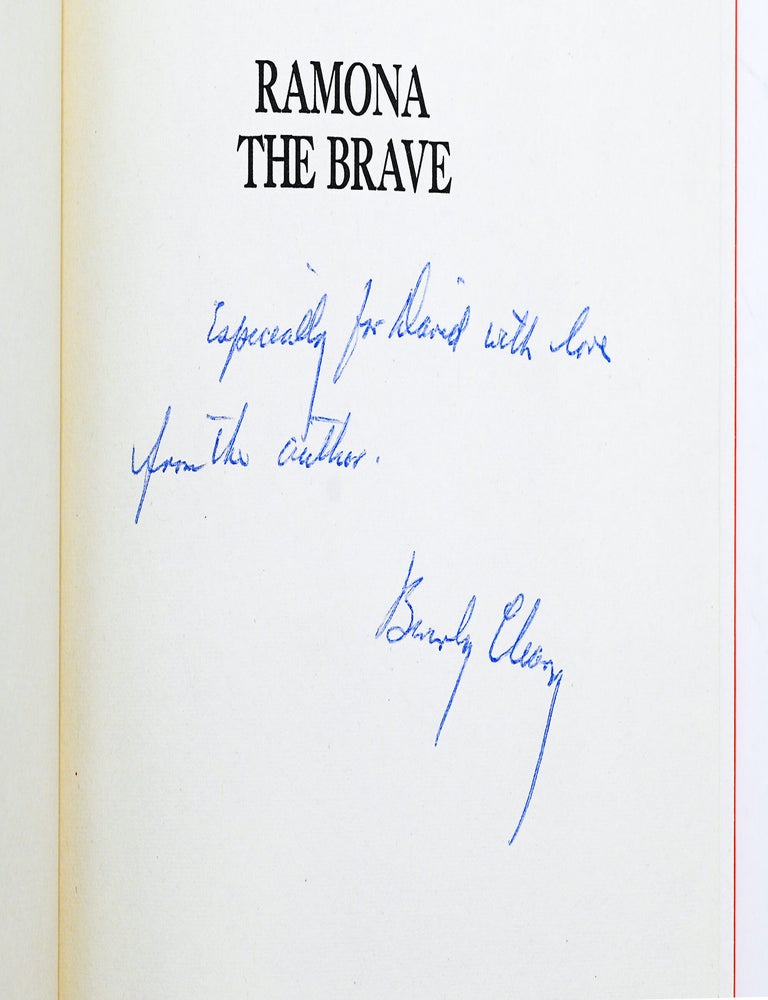 RAMONA
THE BRAVE
Especially for David with love
from the author.
Beverly Cleary